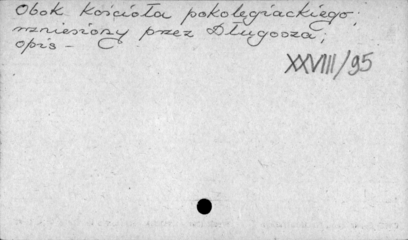 Obok kościoła pokolegiackiego;
wzniesiony przez Długosza;
opis -
XXVIII/95